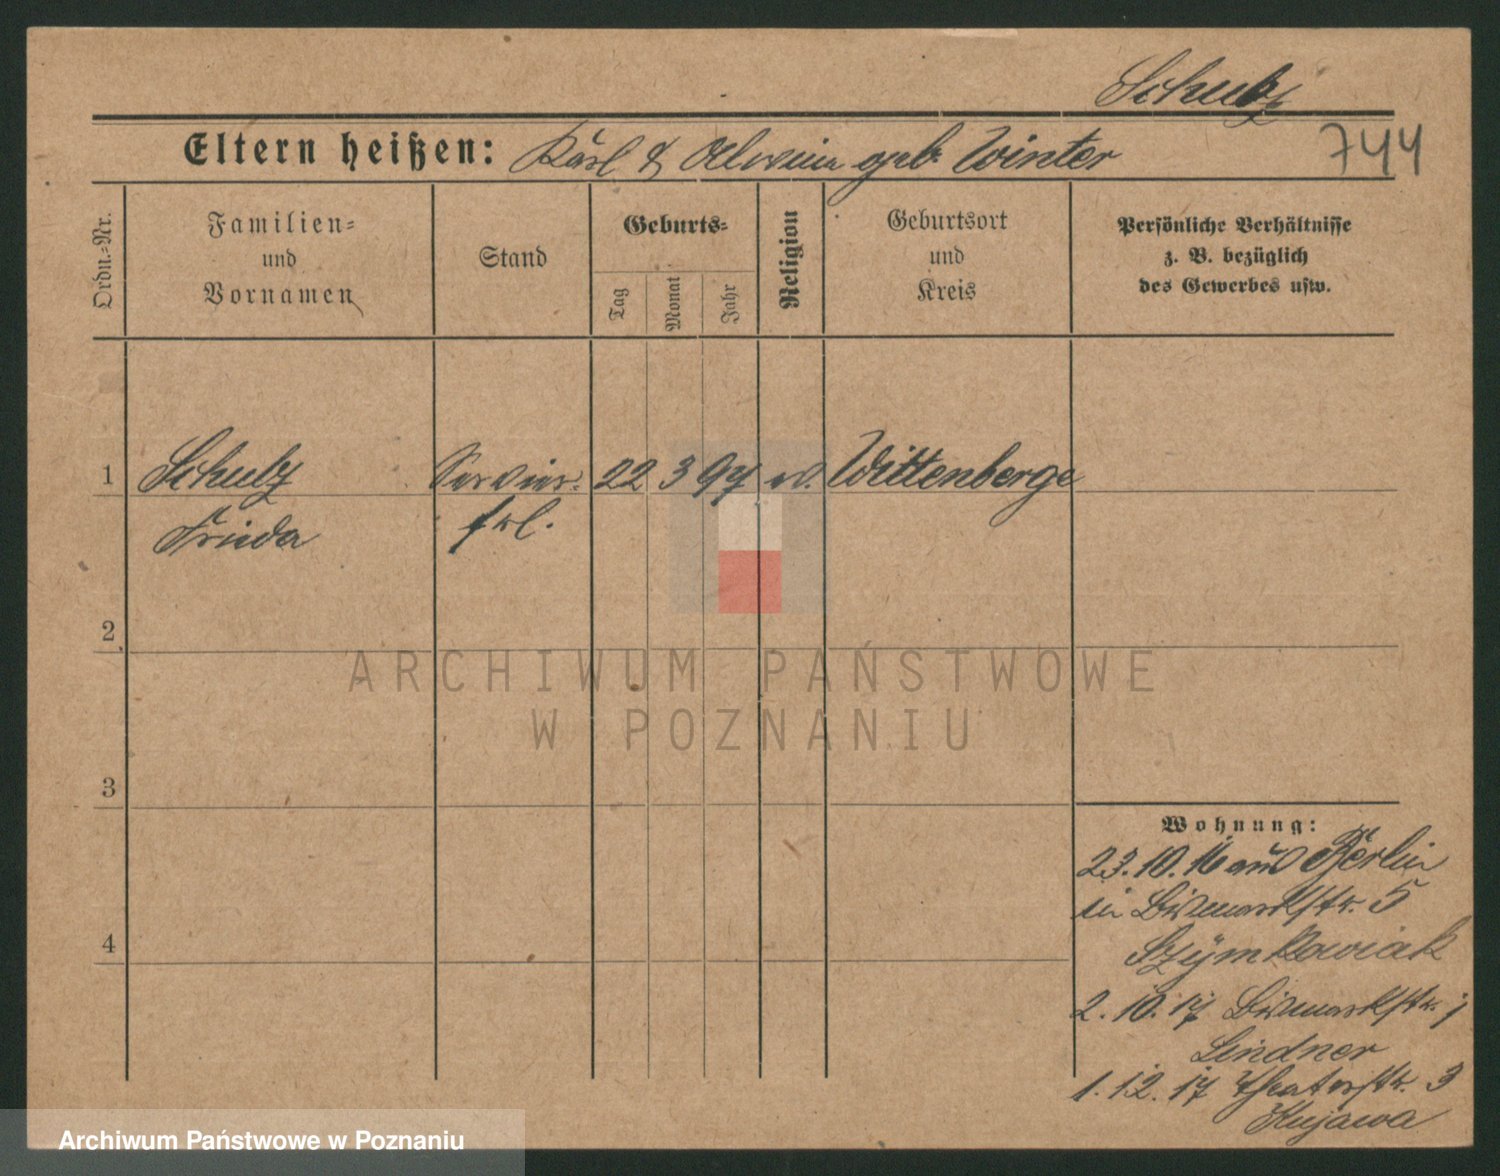 Schulz
Eltern heißen: Karl & Alwine geb. Winter
744
Ordn.-Nr.
Familien-
und
Vornamen
Stand
Geburts-
Tag
Monat
Jahr
Religion
Geburtsort
und
Kreis
Persönliche Verhältnisse
z. B. bezüglich
des Gewerbes usw.
1 Schulz Servier- 22 3 97 ev. Wittenberge
Frieda frl.
2
3
4
Wohnung:
23.10.16 aus Berlin
in Bismarkstr. 5
Szymkowiak
2.10.17 Bismarkstr. 1
Lindner
1.12.17 Theaterstr. 3
Kujawa
ARCHIWUM PAŃSTWOWE
W POZNANIU
Archiwum Państwowe w Poznaniu